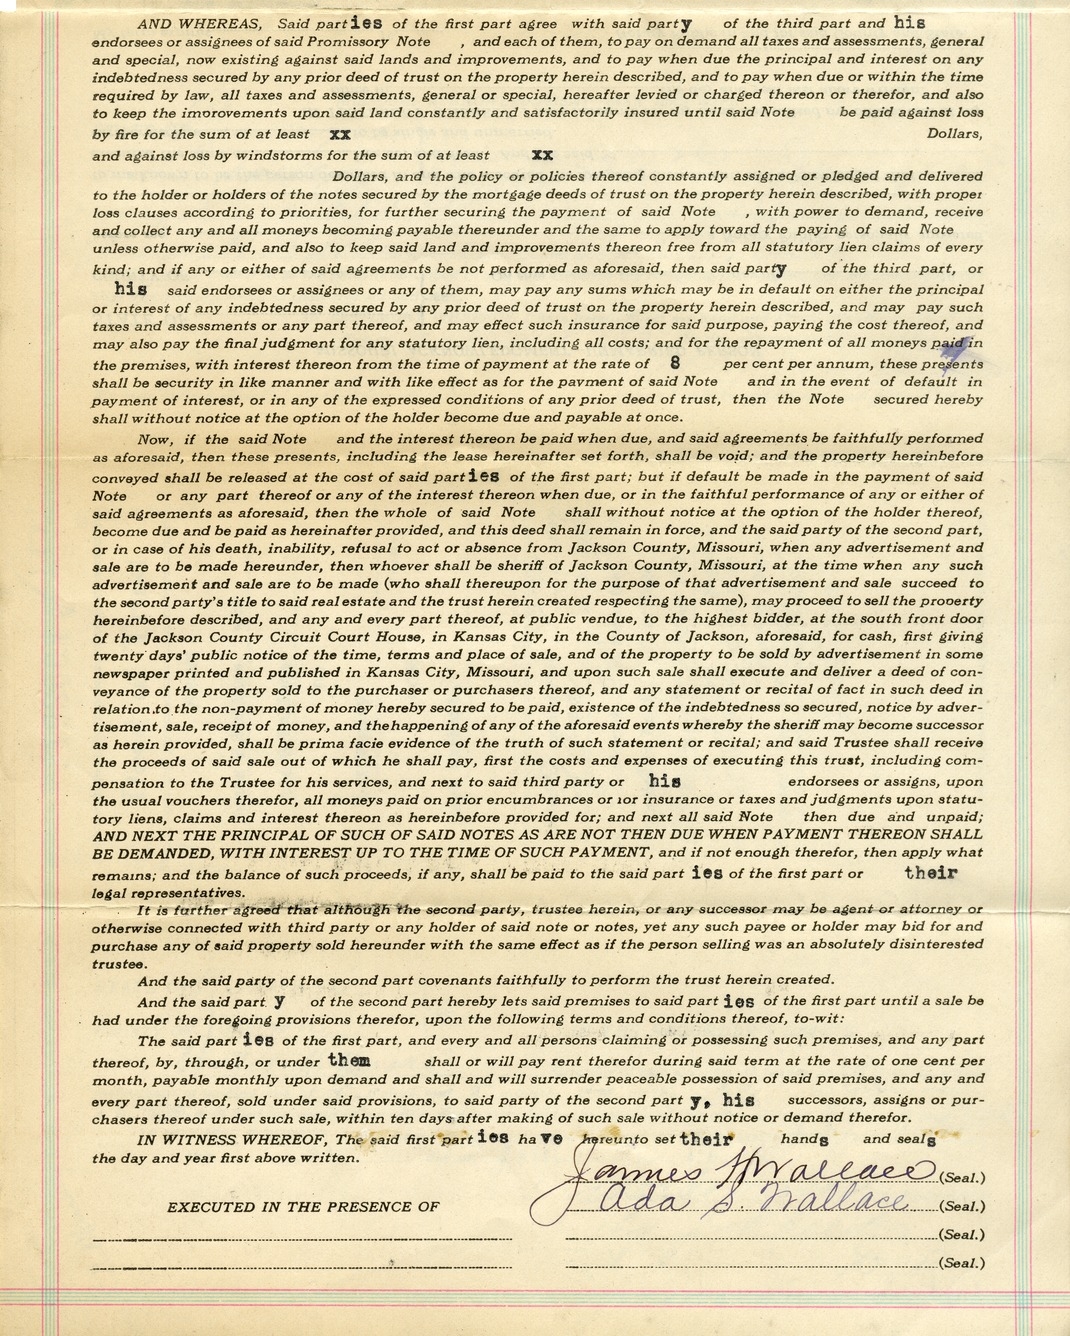 AND WHEREAS, Said parties of the first part agree with said party of the third part and his
endorsees or assignees of said Promissory Note , and each of them, to pay on demand all taxes and assessments, general
and special, now existing against said lands and improvements, and to pay when due the principal and interest on any
indebtedness secured by any prior deed of trust on the property herein described, and to pay when due or within the time
required by law, all taxes and assessments, general or special, hereafter levied or charged thereon or therefor, and also
to keep the improvements upon said land constantly and satisfactorily insured until said Note be paid against loss
by fire for the sum of at least xx Dollars,
and against loss by windstorms for the sum of at least xx
Dollars, and the policy or policies thereof constantly assigned or pledged and delivered
to the holder or holders of the notes secured by the mortgage deeds of trust on the property herein described, with proper
loss clauses according to priorities, for further securing the payment of said Note , with power to demand, receive
and collect any and all moneys becoming payable thereunder and the same to apply toward the paying of said Note
unless otherwise paid, and also to keep said land and improvements thereon free from all statutory lien claims of every
kind; and if any or either of said agreements be not performed as aforesaid, then said party of the third part, or
his said endorsees or assignees or any of them, may pay any sums which may be in default on either the principal
or interest of any indebtedness secured by any prior deed of trust on the property herein described, and may pay such
taxes and assessments or any part thereof, and may effect such insurance for said purpose, paying the cost thereof, and
may also pay the final judgment for any statutory lien, including all costs; and for the repayment of all moneys paid in
the premises, with interest thereon from the time of payment at the rate of 8 per cent per annum, these presents
shall be security in like manner and with like effect as for the payment of said Note and in the event of default in
payment of interest, or in any of the expressed conditions of any prior deed of trust, then the Note secured hereby
shall without notice at the option of the holder become due and payable at once.
Now, if the said Note and the interest thereon be paid when due, and said agreements be faithfully performed
as aforesaid, then these presents, including the lease hereinafter set forth, shall be void; and the property hereinbefore
conveyed shall be released at the cost of said parties of the first part; but if default be made in the payment of said
Note or any part thereof or any of the interest thereon when due, or in the faithful performance of any or either of
said agreements as aforesaid, then the whole of said Note shall without notice at the option of the holder thereof,
become due and be paid as hereinafter provided, and this deed shall remain in force, and the said party of the second part,
or in case of his death, inability, refusal to act or absence from Jackson County, Missouri, when any advertisement and
sale are to be made hereunder, then whoever shall be sheriff of Jackson County, Missouri, at the time when any such
advertisement and sale are to be made (who shall thereupon for the purpose of that advertisement and sale succeed to
the second party's title to said real estate and the trust herein created respecting the same), may proceed to sell the property
hereinbefore described, and any and every part thereof, at public vendue, to the highest bidder, at the south front door
of the Jackson County Circuit Court House, in Kansas City, in the County of Jackson, aforesaid, for cash, first giving
twenty days' public notice of the time, terms and place of sale, and of the property to be sold by advertisement in some
newspaper printed and published in Kansas City, Missouri, and upon such sale shall execute and deliver a deed of con-
veyance of the property sold to the purchaser or purchasers thereof, and any statement or recital of fact in such deed in
relation to the non-payment of money hereby secured to be paid, existence of the indebtedness so secured, notice by adver-
tisement, sale, receipt of money, and the happening of any of the aforesaid events whereby the sheriff may become successor
as herein provided, shall be prima facie evidence of the truth of such statement or recital; and said Trustee shall receive
the proceeds of said sale out of which he shall pay, first the costs and expenses of executing this trust, including com-
pensation to the Trustee for his services, and next to said third party or his endorsees or assigns, upon
the usual vouchers therefor, all moneys paid on prior encumbrances or for insurance or taxes and judgments upon statu-
tory liens, claims and interest thereon as hereinbefore provided for; and next all said Note then due and unpaid;
AND NEXT THE PRINCIPAL OF SUCH OF SAID NOTES AS ARE NOT THEN DUE WHEN PAYMENT THEREON SHALL
BE DEMANDED, WITH INTEREST UP TO THE TIME OF SUCH PAYMENT, and if not enough therefor, then apply what
remains; and the balance of such proceeds, if any, shall be paid to the said part ies of the first part or their
legal representatives.
It is further agreed that although the second party, trustee herein, or any successor may be agent or attorney or
otherwise connected with third party or any holder of said note or notes, yet any such payee or holder may bid for and
purchase any of said property sold hereunder with the same effect as if the person selling was an absolutely disinterested
trustee.
And the said party of the second part covenants faithfully to perform the trust herein created.
And the said part y of the second part hereby lets said premises to said part ies of the first part until a sale be
had under the foregoing provisions therefor, upon the following terms and conditions thereof, to-wit:
The said part ies of the first part, and every and all persons claiming or possessing such premises, and any part
thereof, by, through, or under them shall or will pay rent therefor during said term at the rate of one cent per
month, payable monthly upon demand and shall and will surrender peaceable possession of said premises, and any and
every part thereof, sold under said provisions, to said party of the second part y, his successors, assigns or pur-
chasers thereof under such sale, within ten days after making of such sale without notice or demand therefor.
IN WITNESS WHEREOF, The said first part ies have hereunto set their hands and seals
the day and year first above written.
James H Wallace (Seal.)
EXECUTED IN THE PRESENCE OF Ada S. Wallace (Seal.)
(Seal.)
(Seal.)